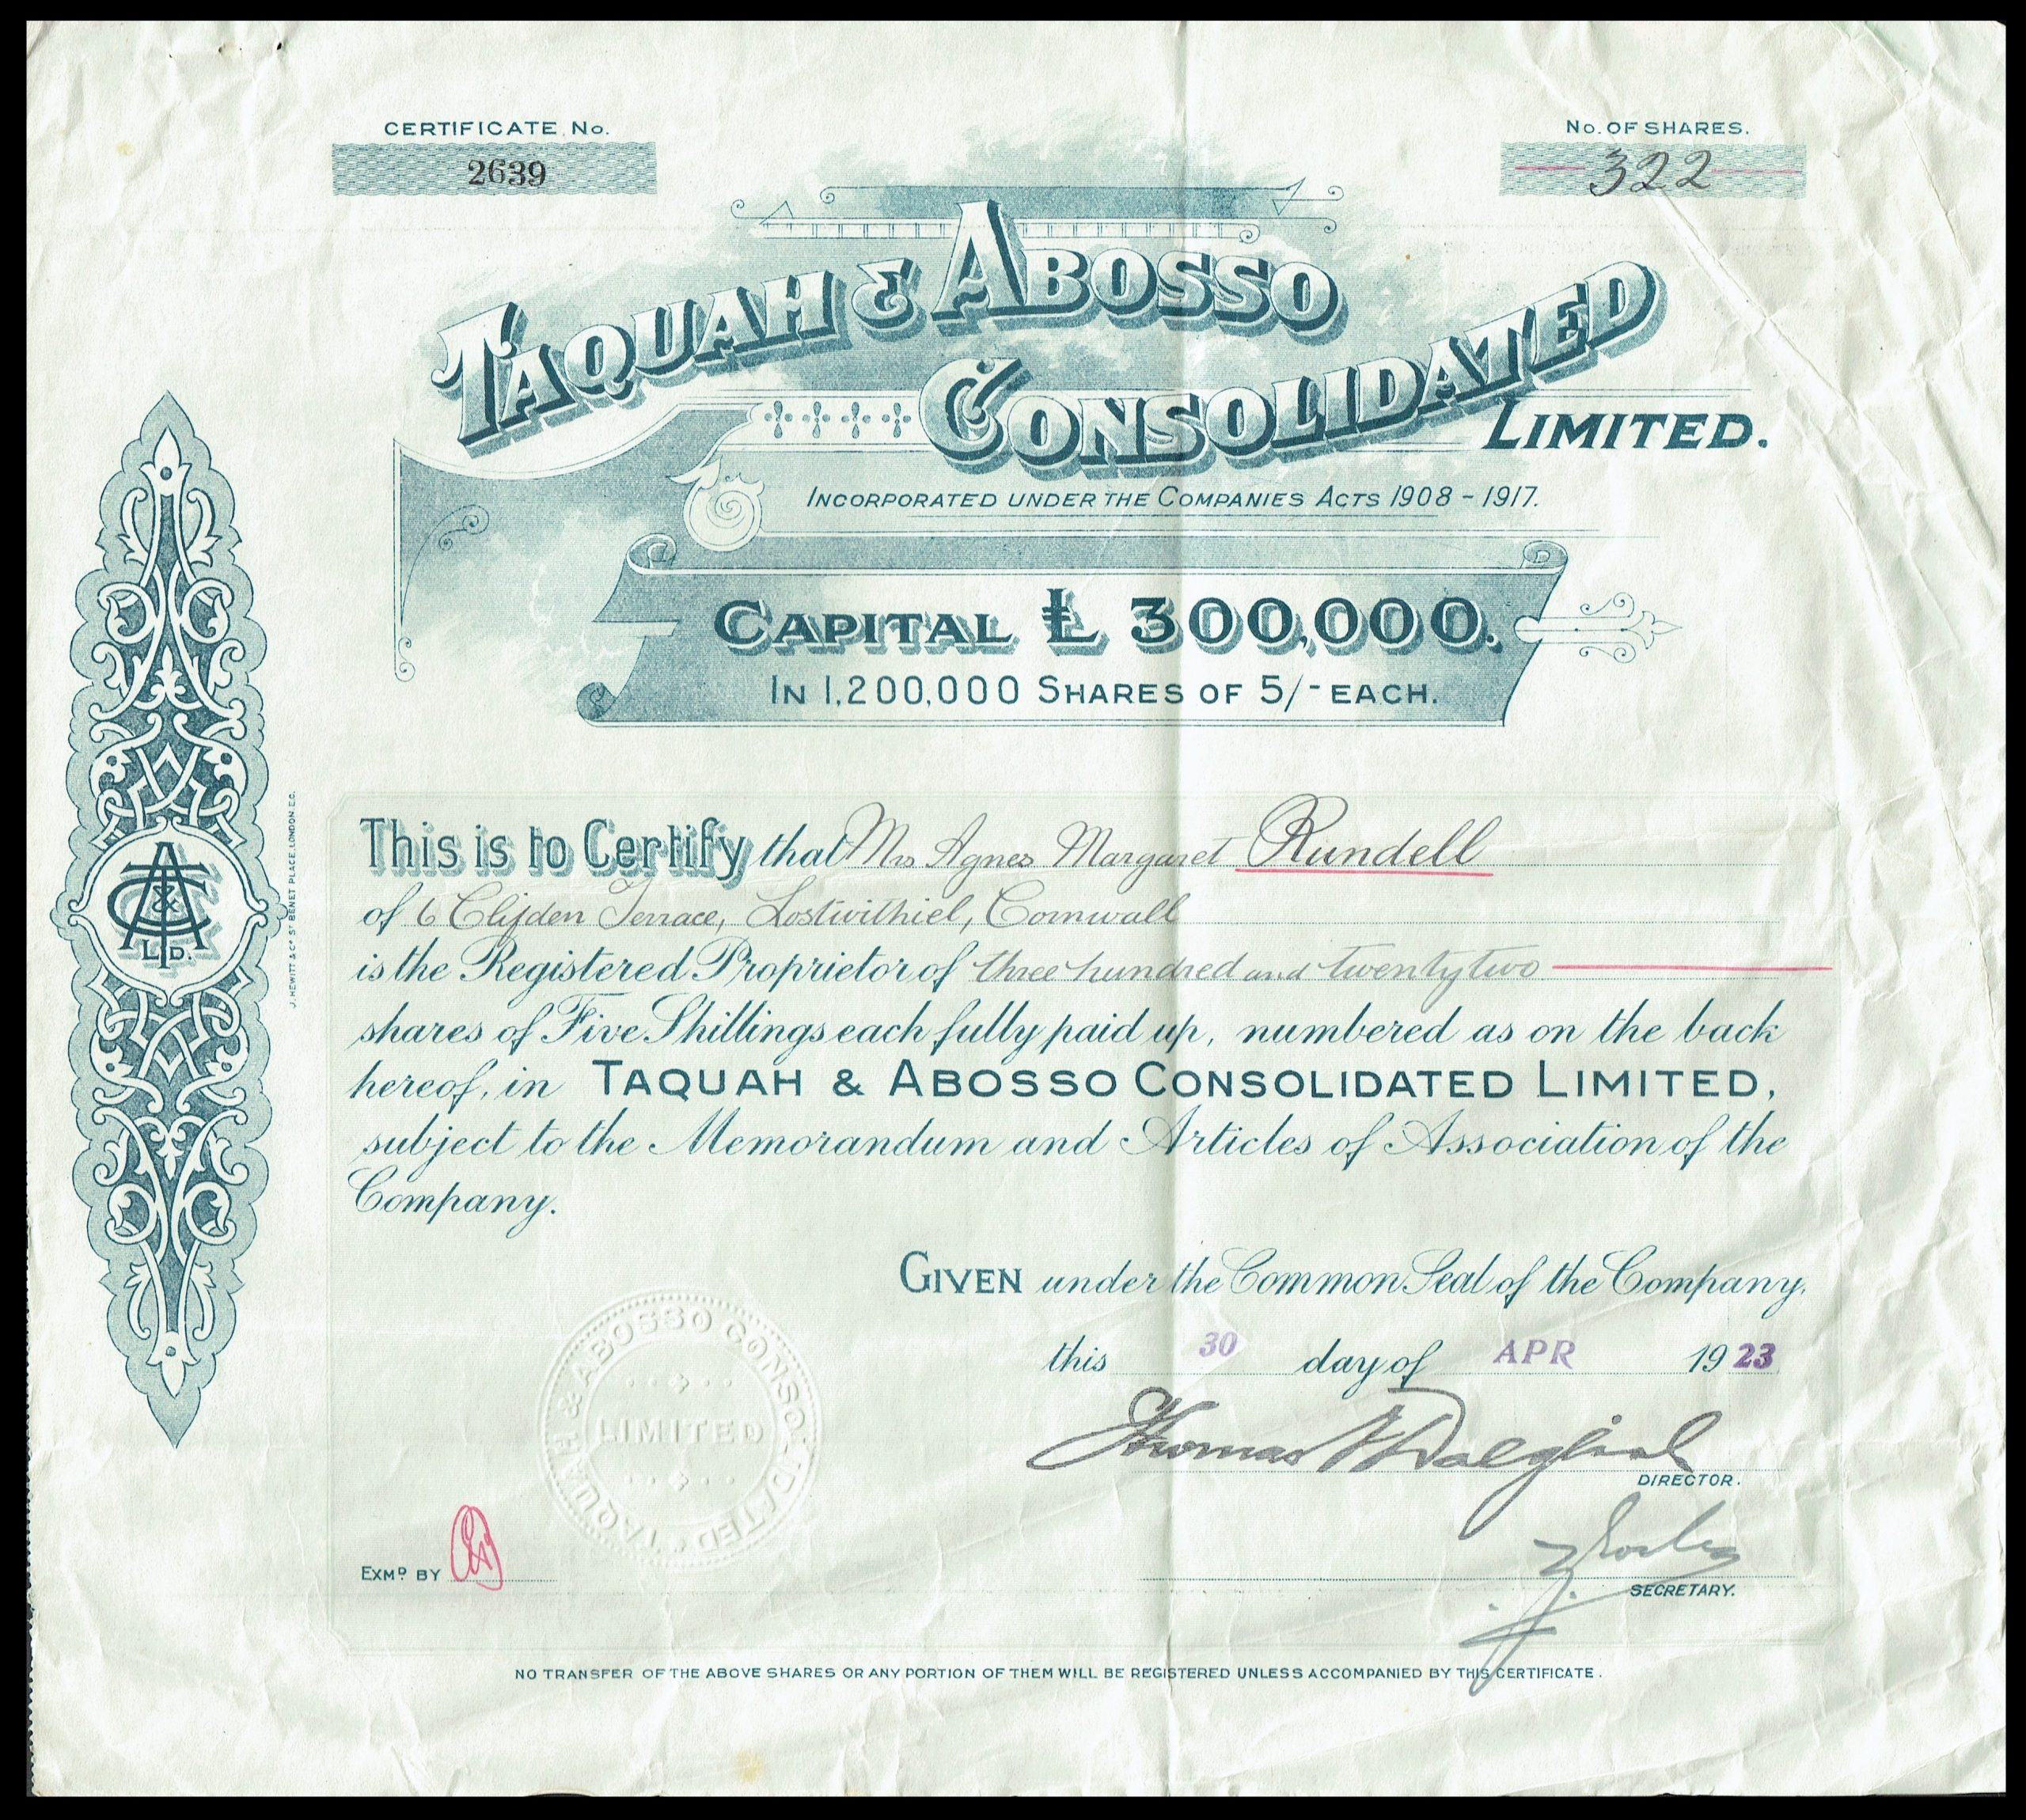 CERTIFICATE No.
2639
No. OF SHARES.
322
TAQUAH & ABOSSO
CONSOLIDATED
LIMITED.
INCORPORATED UNDER THE COMPANIES ACTS 1908 - 1917.
CAPITAL £ 300,000.
IN 1,200,000 SHARES OF 5/- EACH.
This is to Certify that Mrs Agnes Margaret Rundell
of 6 Clifden Terrace, Lostwithiel, Cornwall
is the Registered Proprietor of three hundred and twenty two
shares of Five Shillings each fully paid up, numbered as on the back
hereof, in TAQUAH & ABOSSO CONSOLIDATED LIMITED,
subject to the Memorandum and Articles of Association of the
Company.
GIVEN under the Common Seal of the Company,
this 30 day of APR 1923
Thomas Dalglish
DIRECTOR.
SECRETARY.
TAQUAH & ABOSSO CONSOLIDATED
LIMITED
EXMD. BY
NO TRANSFER OF THE ABOVE SHARES OR ANY PORTION OF THEM WILL BE REGISTERED UNLESS ACCOMPANIED BY THIS CERTIFICATE.
TA&C
LTD.
J. HEWITT & Co. ST BENET PLACE, LONDON. E.C.